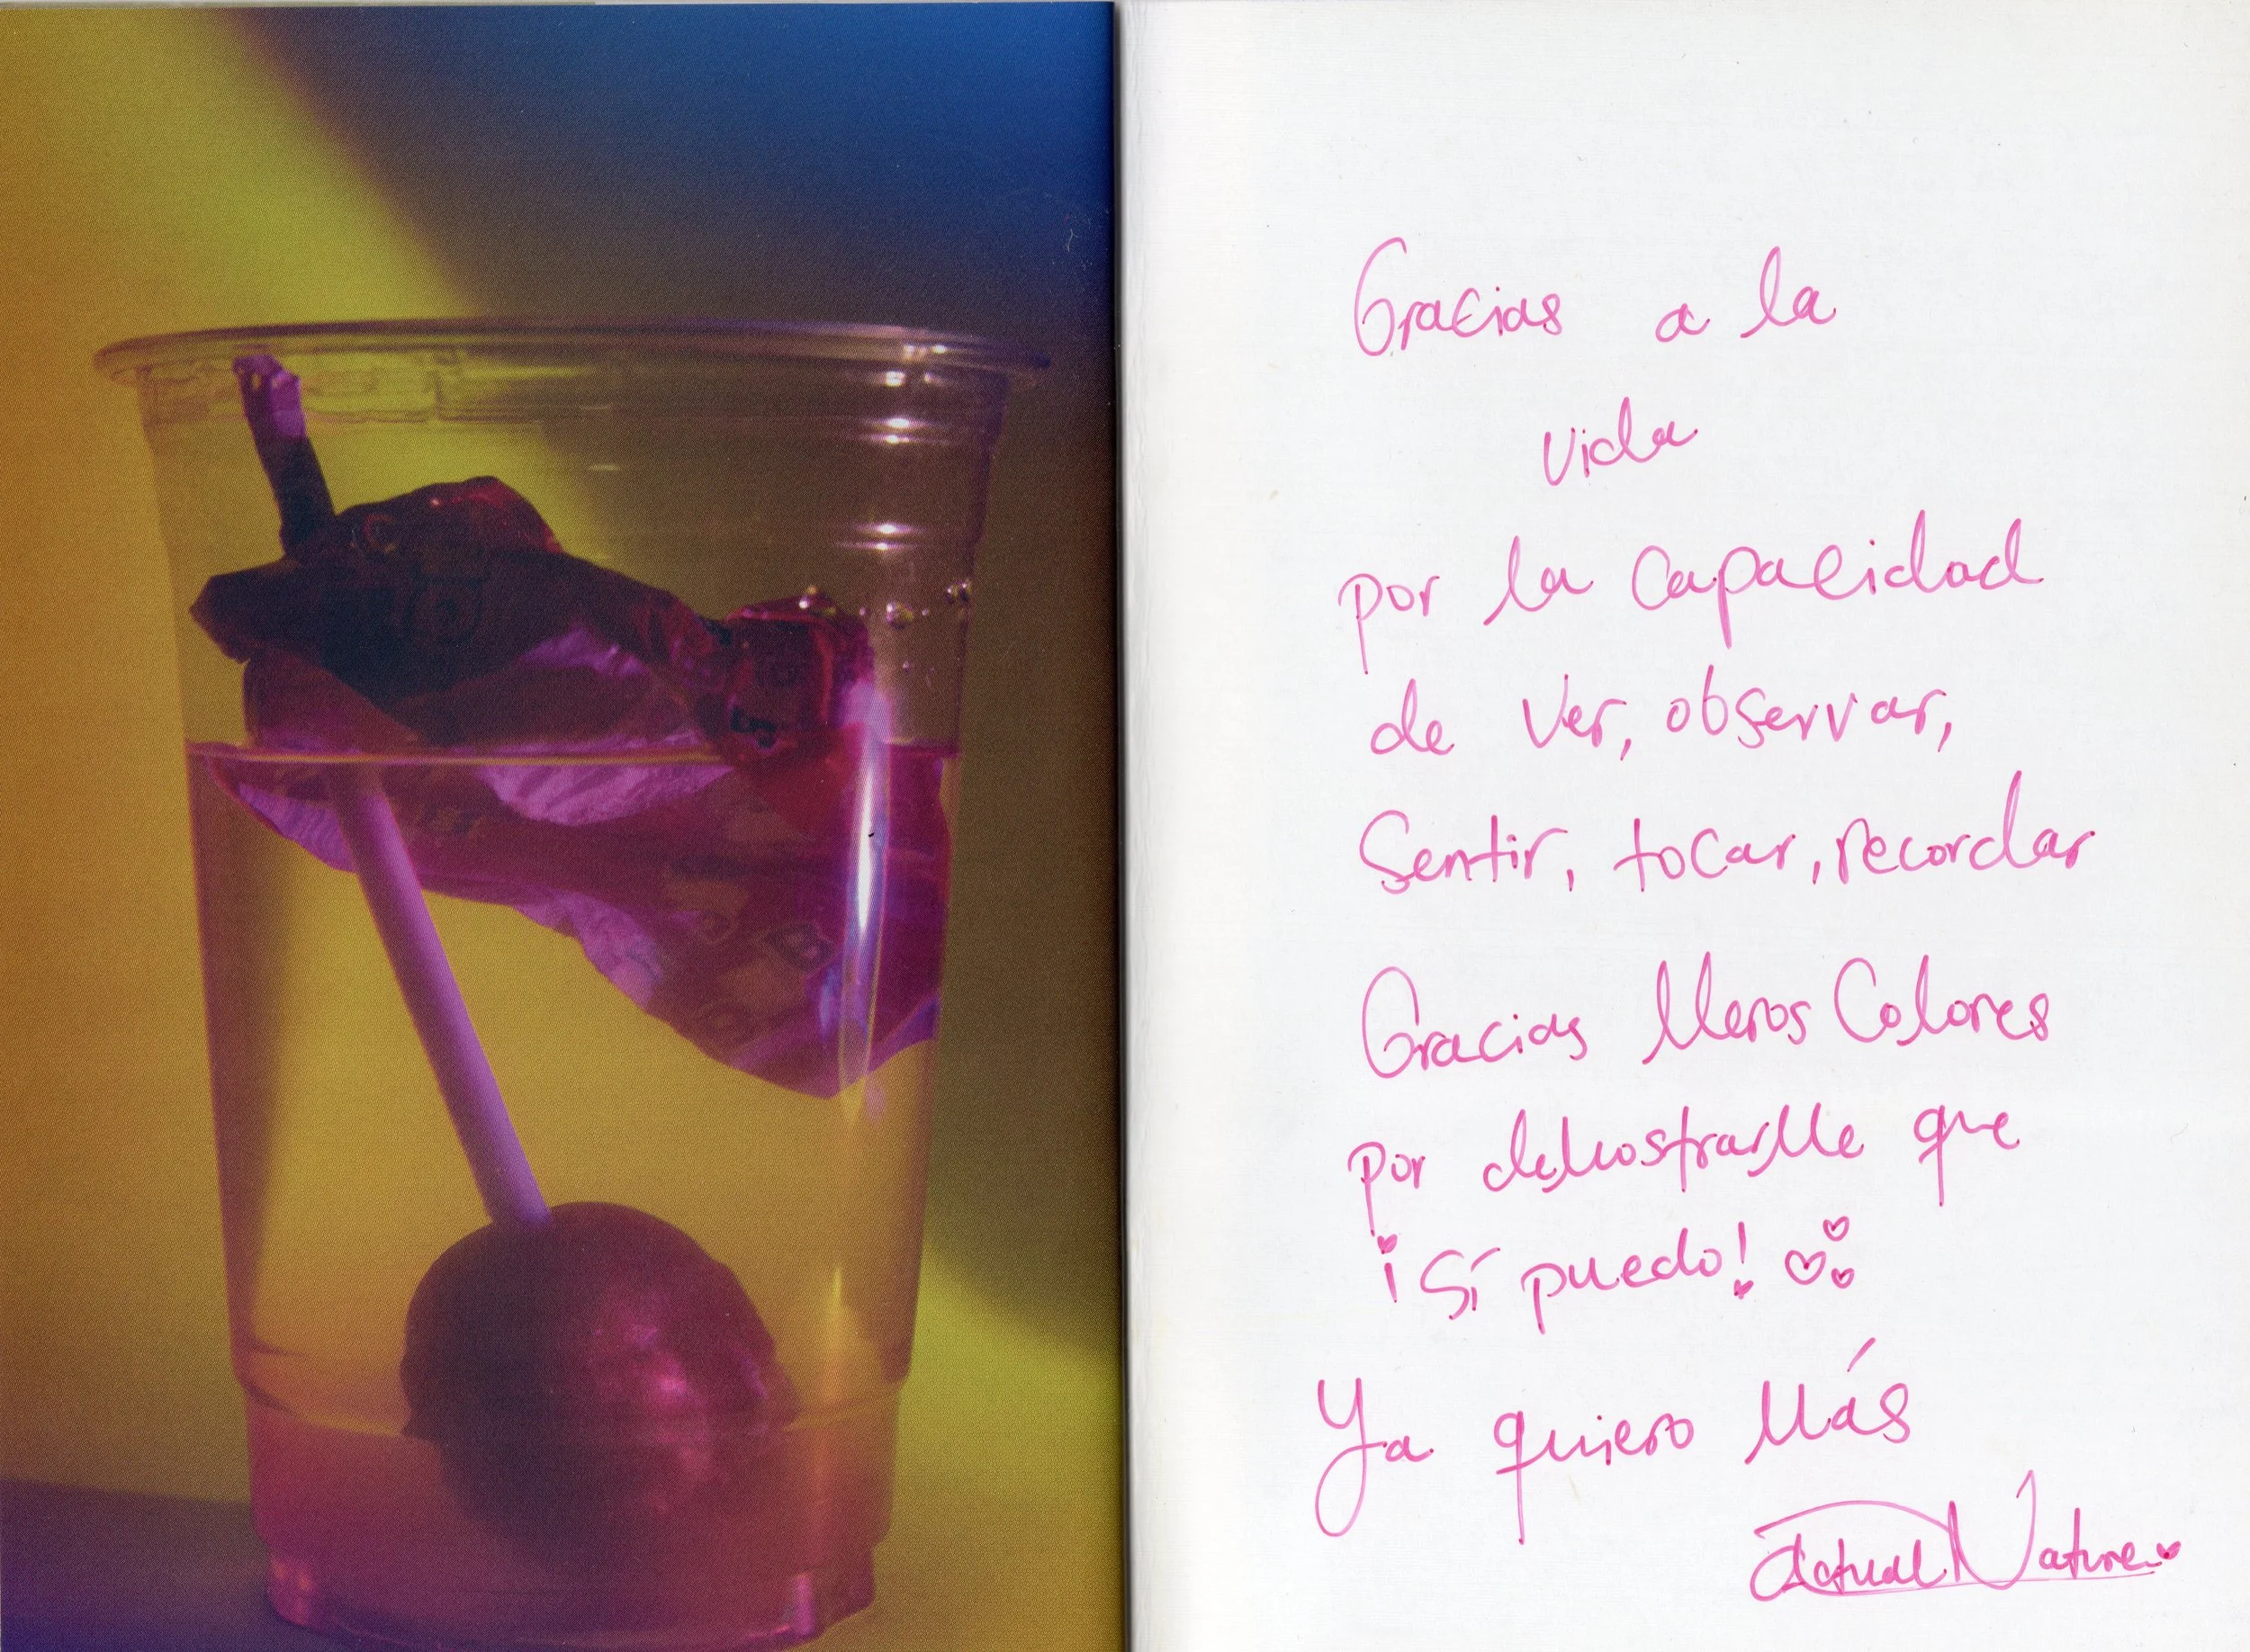 Gracias a la
vida
por la capacidad
de ver, observar,
Sentir, tocar, recordar
Gracias Meros Colores
por demostrarMe que
¡Sí puedo!
Ya quiero Más
Actual Nature